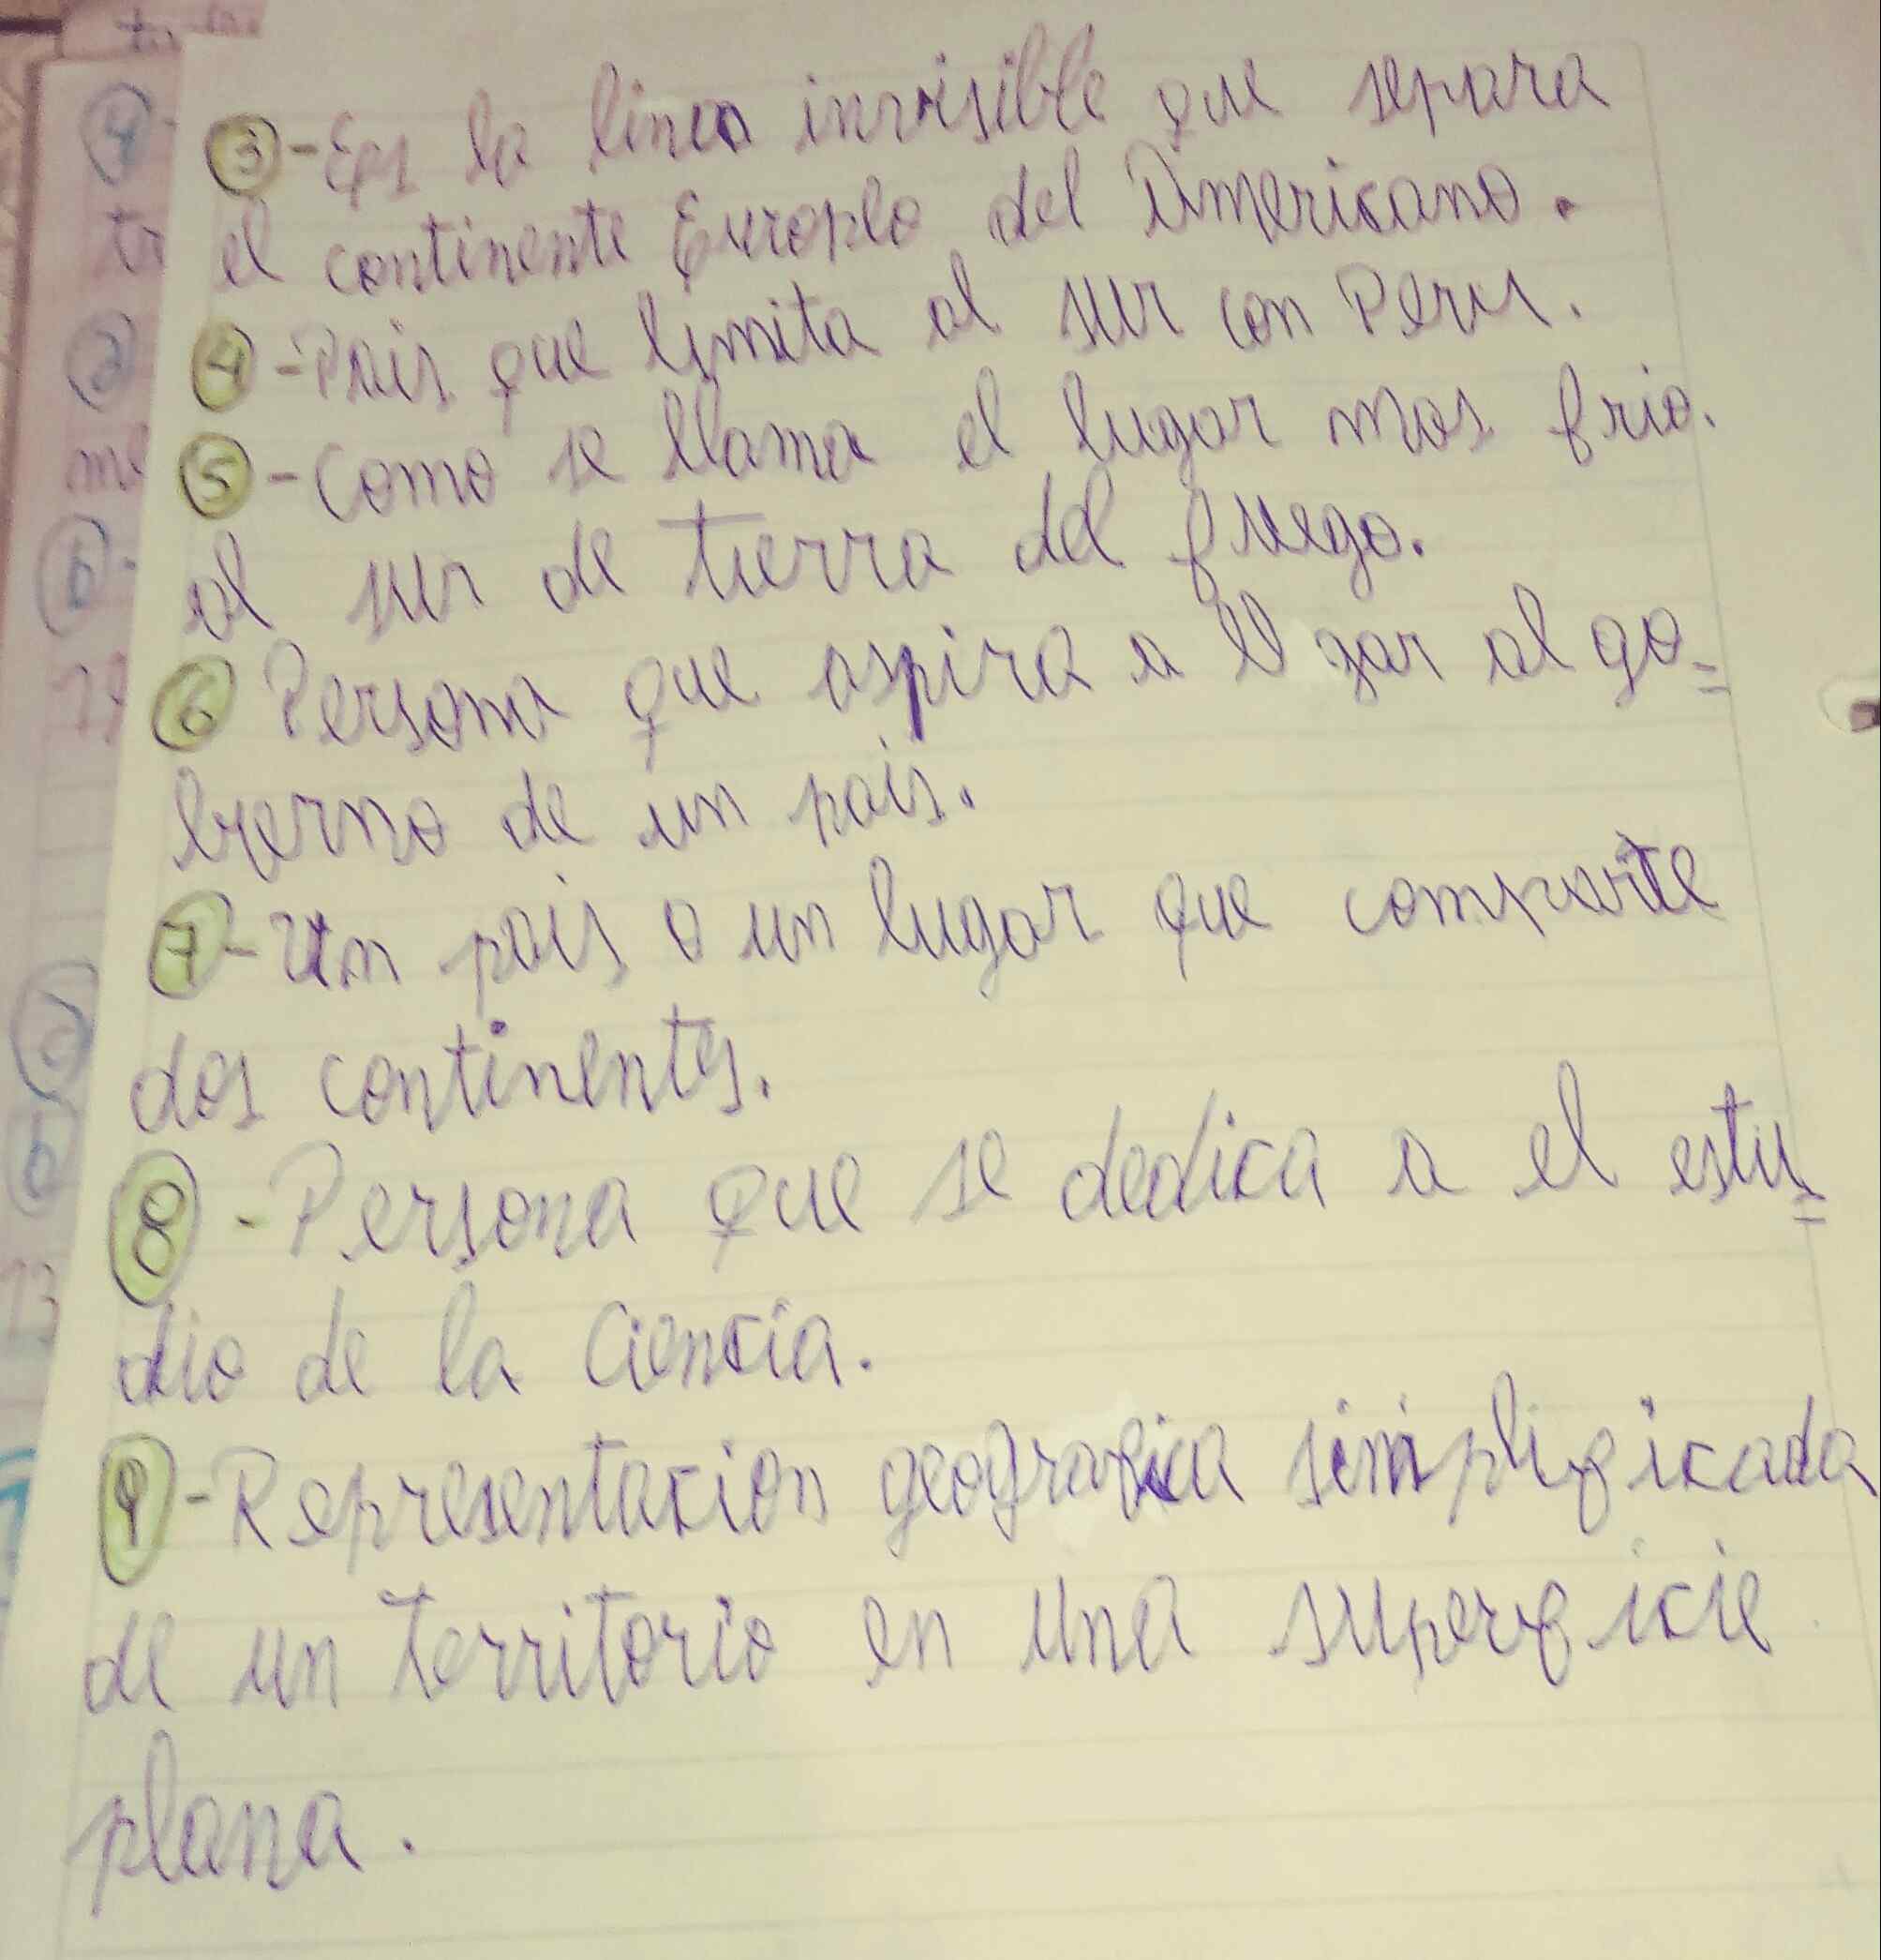 3-Es la linea invisible que separa
el continente Europeo del Americano.
4-Pais que limita al sur con Peru.
5-Como se llama el lugar mas frio.
al sur de tierra del fuego.
6 Persona que aspira a llgar al go=
bierno de un pais.
7-Un pais o un lugar que comparte
dos continentes.
8-Persona que se dedica a el estu=
dio de la Ciencia.
9-Representacion geografica simplificada
de un territorio en una superficie
plana.